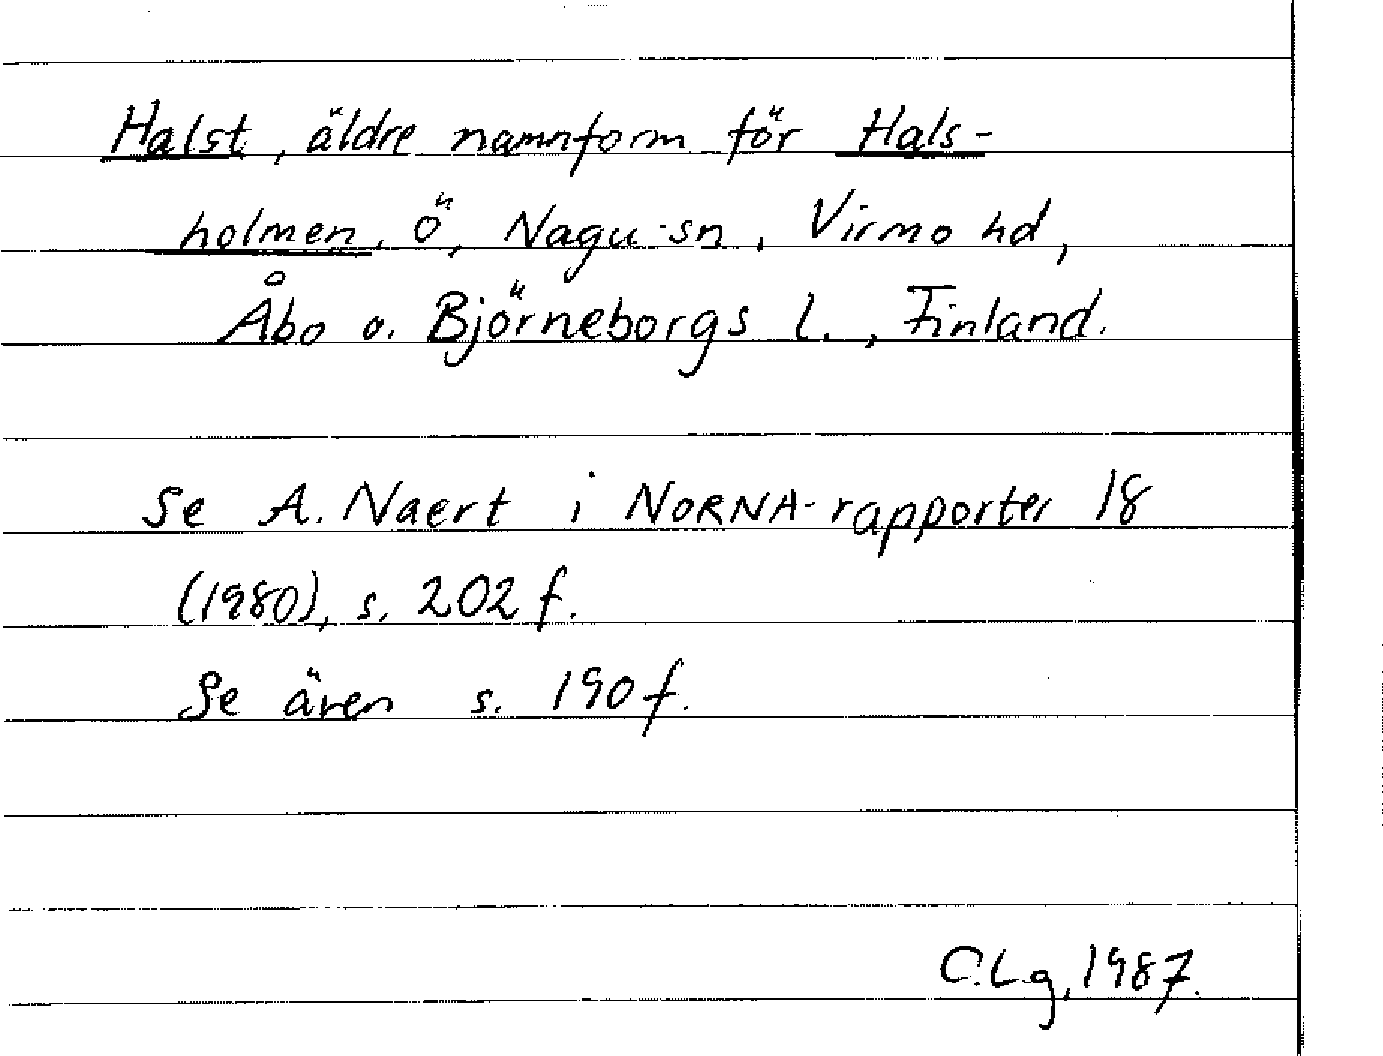 Halst, äldre namnform för Hals-
holmen, ö, Nagu sn, Virmo hd,
Åbo o. Björneborgs l., Finland.
Se A. Naert i NORNA-rapporter 18
(1980), s. 202 f.
Se även s. 190 f.
C.Lg, 1987.